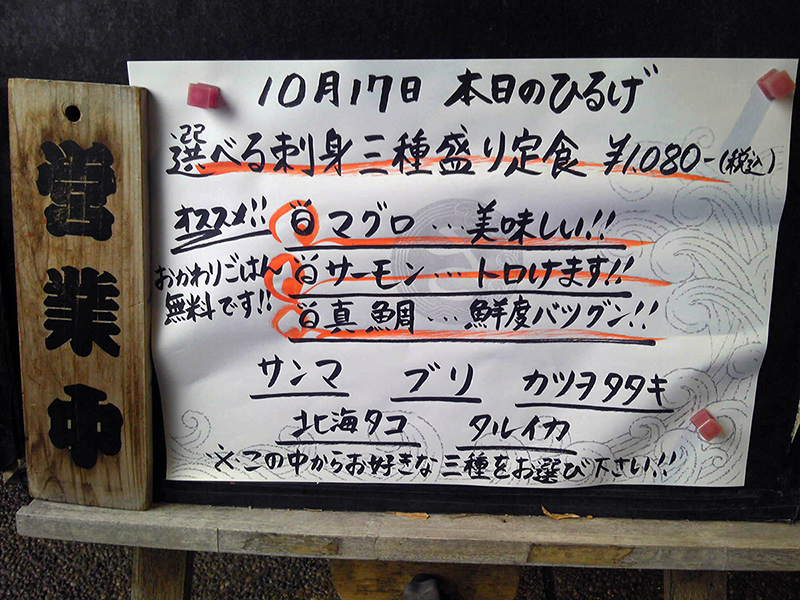 営業中
10月17日 本日のひるげ
選べる刺身三種盛り定食 ¥1,080-(税込)
オススメ!!
おかわりごはん
無料です!!
マグロ…美味しい!!
サーモン…トロけます!!
真鯛…鮮度バツグン!!
サンマ ブリ カツヲタタキ
北海タコ タルイカ
※この中からお好きな三種をお選び下さい!!